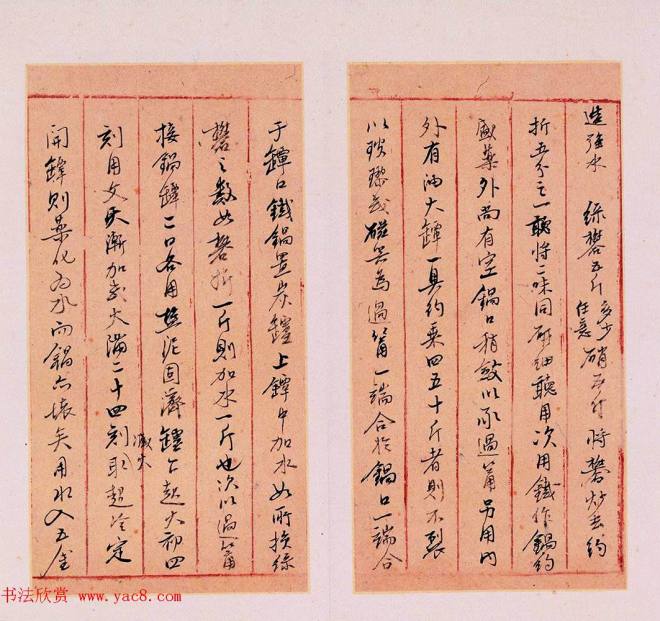 造强水　綠礬五斤多少任意硝五斤將礬炒去約
折五分之一聽將二味同研細聽用次用鐵作鍋約
盛藥外尚有空鍋口稍斂以承過筩另用內
外有油大罈一具約乘四五十斤者則不裂
以玻瓈或磁器為過筩一端合於鍋口一端合
于罈口鐵鍋置炭罏上罈中加水如所損綠
礬之數如礬折一斤則加水一斤也次以過筩
接鍋罈二口各用鹽泥固濟罏下起火初四
刻用文火漸加武火滿二十四刻減火取起冷定
開罈則藥化為水而鍋亦壞矣用水入五金
书法欣赏 www.yac8.com